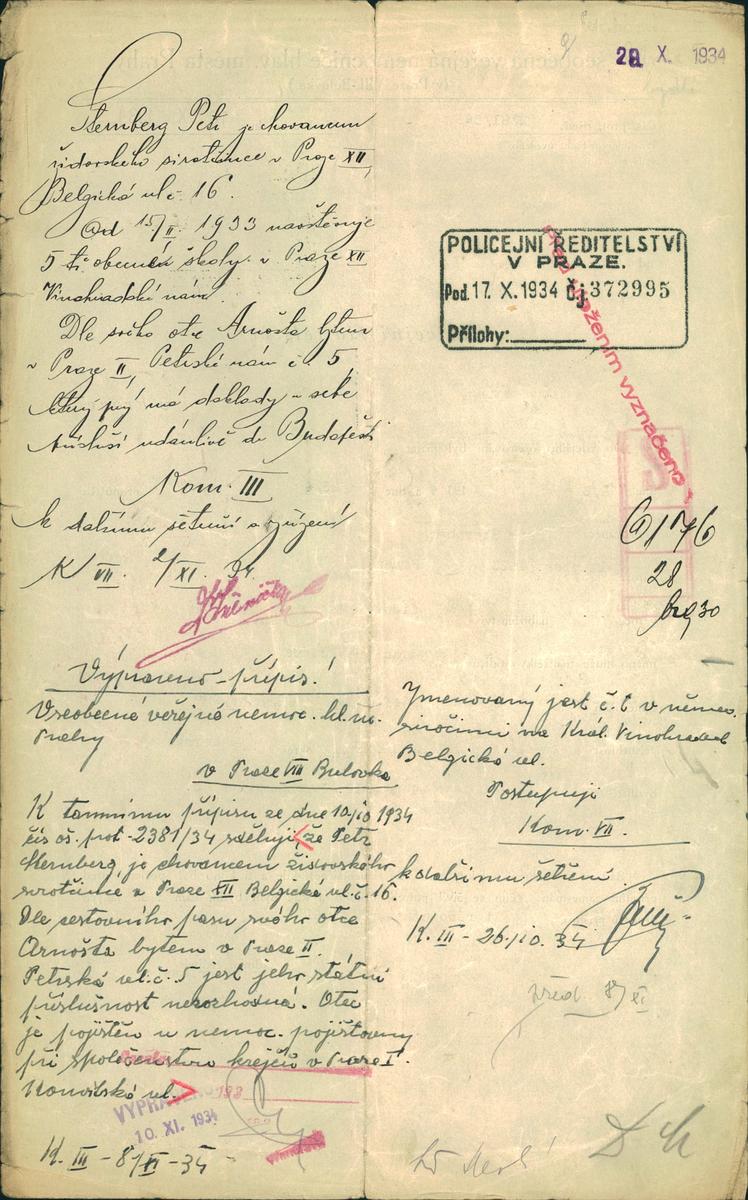 29. X. 1934
Sternberg Petr je chovancem
židovského sirotčince v Praze XII,
Belgická ul. č. 16.
Od 15/II. 1933 navštěvuje
5 tř. obecné školy v Praze XII
Vinohradské nám.
Dle svého otce Arnošta bytem
v Praze II, Petrské nám č. 5,
který prý má doklady u sebe
přísluší údánlivě do Budapešti
Kom. III
k dalšímu šetření a
K VII. 2/XI. 34.
POLICEJNÍ ŘEDITELSTVÍ
V PRAZE.
Pod. 17. X. 1934 Č.j. 372995
Přílohy:
vyznačeno
6176
28
30
Vypraveno-přípis!
Všeobecné veřejné nemoc. hl. m.
Prahy
v Praze VIII Bulovka
K tamnímu přípisu ze dne 10/10 1934
čís. prot. 2381/34 sděluji, že Petr
Sternberg je chovancem židovského
sirotčince v Praze XII Belgická ul. č. 16.
Dle cestovního pasu svého otce
Arnošta bytem v Praze II.
Petrská ul. č. 5 jest jeho státní
příslušnost nerozhodná. Otec
je pojištěn u nemoc. pojišťovny
při společenstvu krejčů v Praze I.
ul.
VYPRAVENO
10. XI. 1934
K. III - 8/XI - 34
Jmenovaný jest č. t. v
sirotčinci na Král. Vinohradech
Belgická ul.
Postupuji
Kom. VII.
k dalšímu šetření
K. III - 26/10. 34
8/XI